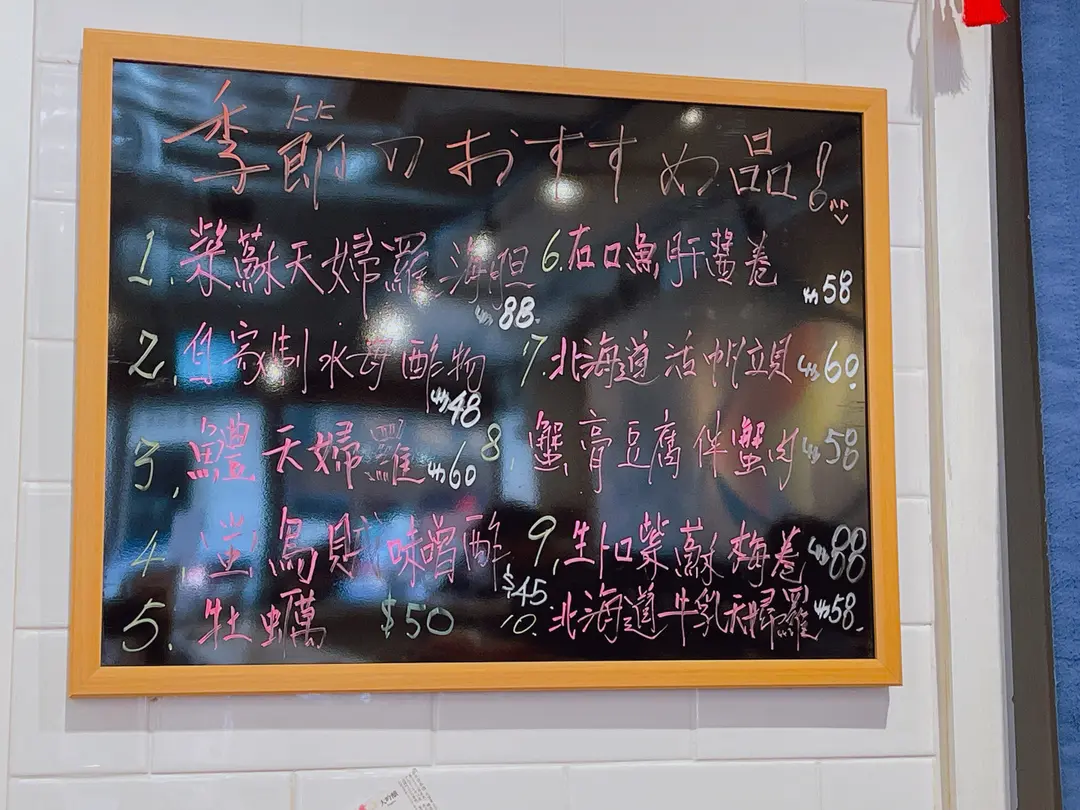 季節のおすすめ品!
1. 紫蘇天婦羅海胆 $88
2. 自家制水母酢物 $48
3. 鱧天婦羅 $60
4. 蛍烏賊味噌酢 $45
5. 牡蠣 $50
6. 石口魚肝醬卷 $58
7. 北海道活帆立貝 $60
8. 蟹膏豆腐伴蟹肉 $58
9. 生トロ紫蘇梅卷 $88
10. 北海道牛乳天婦羅 $58